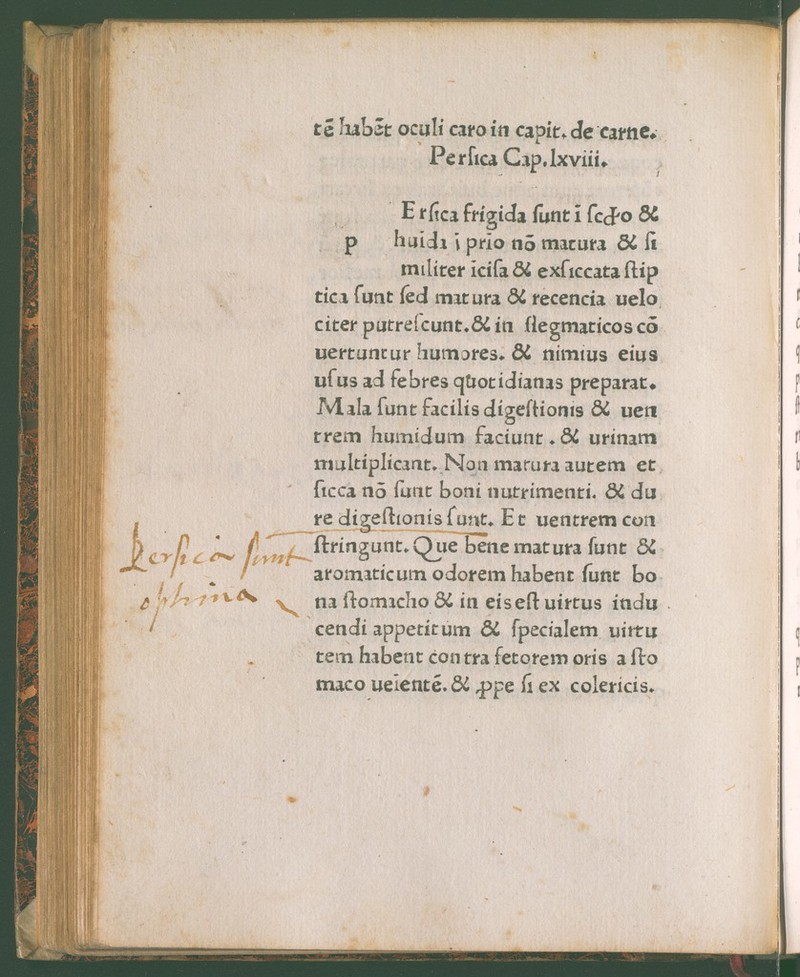 tē habēt oculi caro in capit. de carne.
Perſica Cap.lxviii.
Erſica frigida ſunt ī ſcđo &
p huīdi ī prīo nō matura & ſi
militer īciſa & exſiccata ſtip
tica ſunt ſed matura & recencia uelo
citer putreſcunt.& in flegmaticos cō
uertuntur humores. & nimius eius
uſus ad febres quotidianas preparat.
Mala ſunt facilis digeſtionis & uen
trem humidum faciunt . & urinam
multiplicant. Non matura autem et
ſicca nō ſunt boni nutrimenti. & du
re digeſtionis ſunt. Et uentrem con
ſtringunt. Que bene matura ſunt &
aromaticum odorem habent ſunt bo
na ſtomacho & in eis eſt uirtus indu
cendi appetitum & ſpecialem uirtu
tem habent contra fetorem oris a ſto
maco ueientē. & ꝓpe ſi ex colericis.
Perſica ſunt
optima